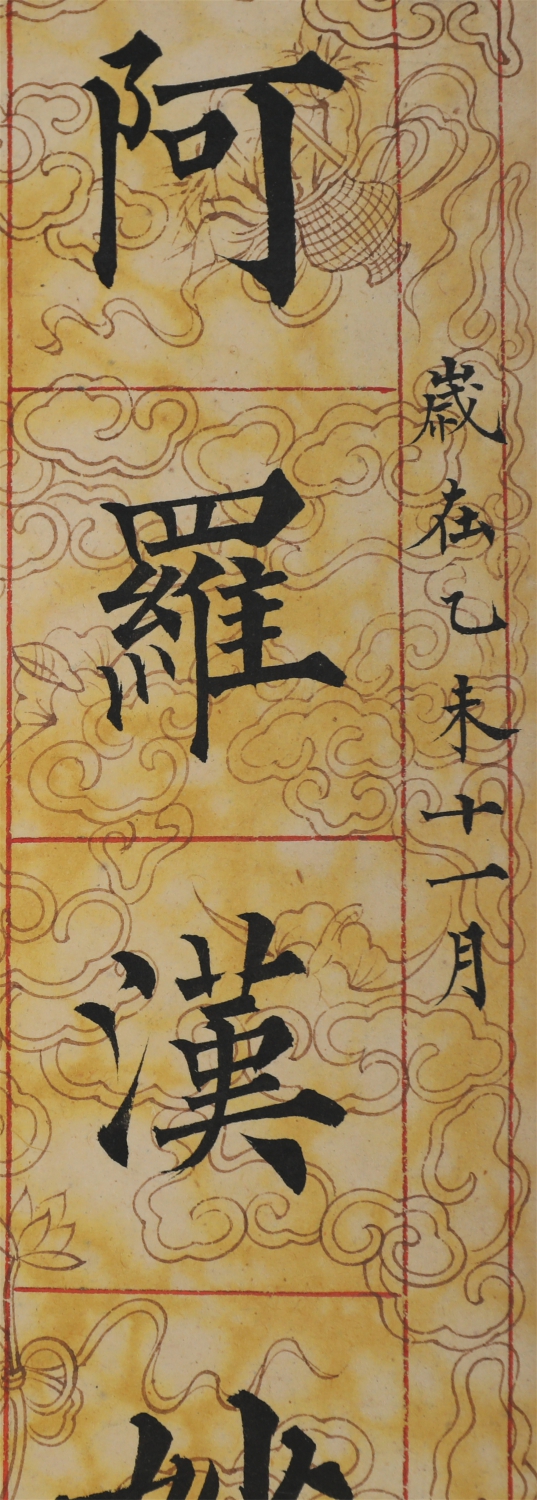 歲在乙未十一月
阿羅漢